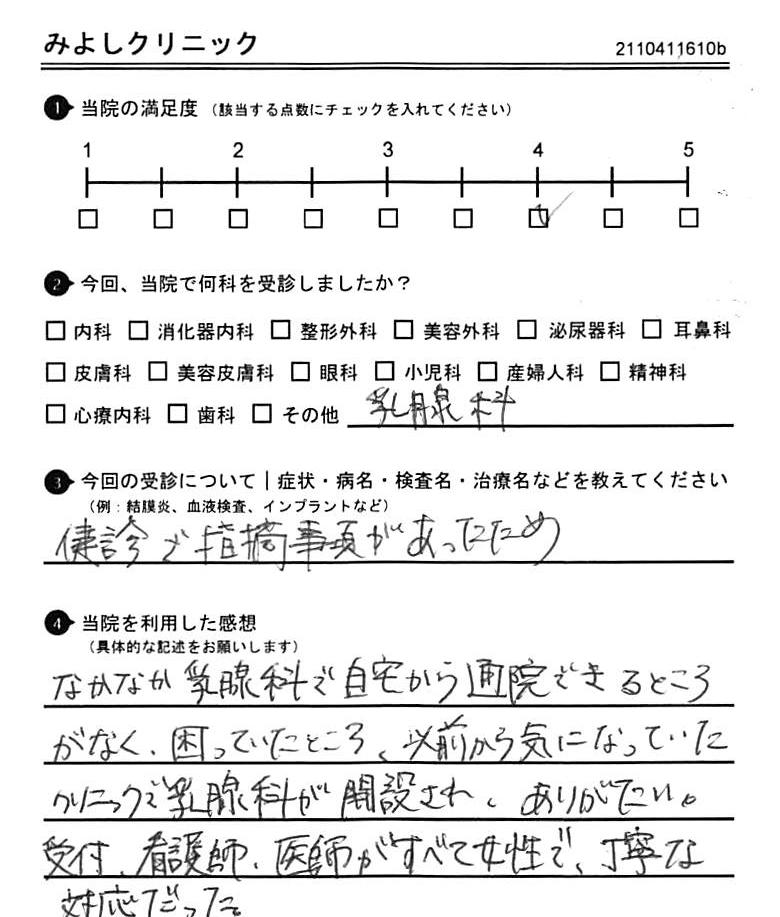 みよしクリニック
2110411610b
1 当院の満足度 (該当する点数にチェックを入れてください)
1 2 3 4 5
2 今回、当院で何科を受診しましたか？
□ 内科 □ 消化器内科 □ 整形外科 □ 美容外科 □ 泌尿器科 □ 耳鼻科
□ 皮膚科 □ 美容皮膚科 □ 眼科 □ 小児科 □ 産婦人科 □ 精神科
□ 心療内科 □ 歯科 □ その他 乳腺科
3 今回の受診について｜症状・病名・検査名・治療名などを教えてください
(例：結膜炎、血液検査、インプラントなど)
健診で指摘事項があったため
4 当院を利用した感想
(具体的な記述をお願いします)
なかなか乳腺科で自宅から通院できるところ
がなく、困っていたところ、以前から気になっていた
クリニックで乳腺科が開設され、ありがたい。
受付、看護師、医師がすべて女性で、丁寧な
対応だった。